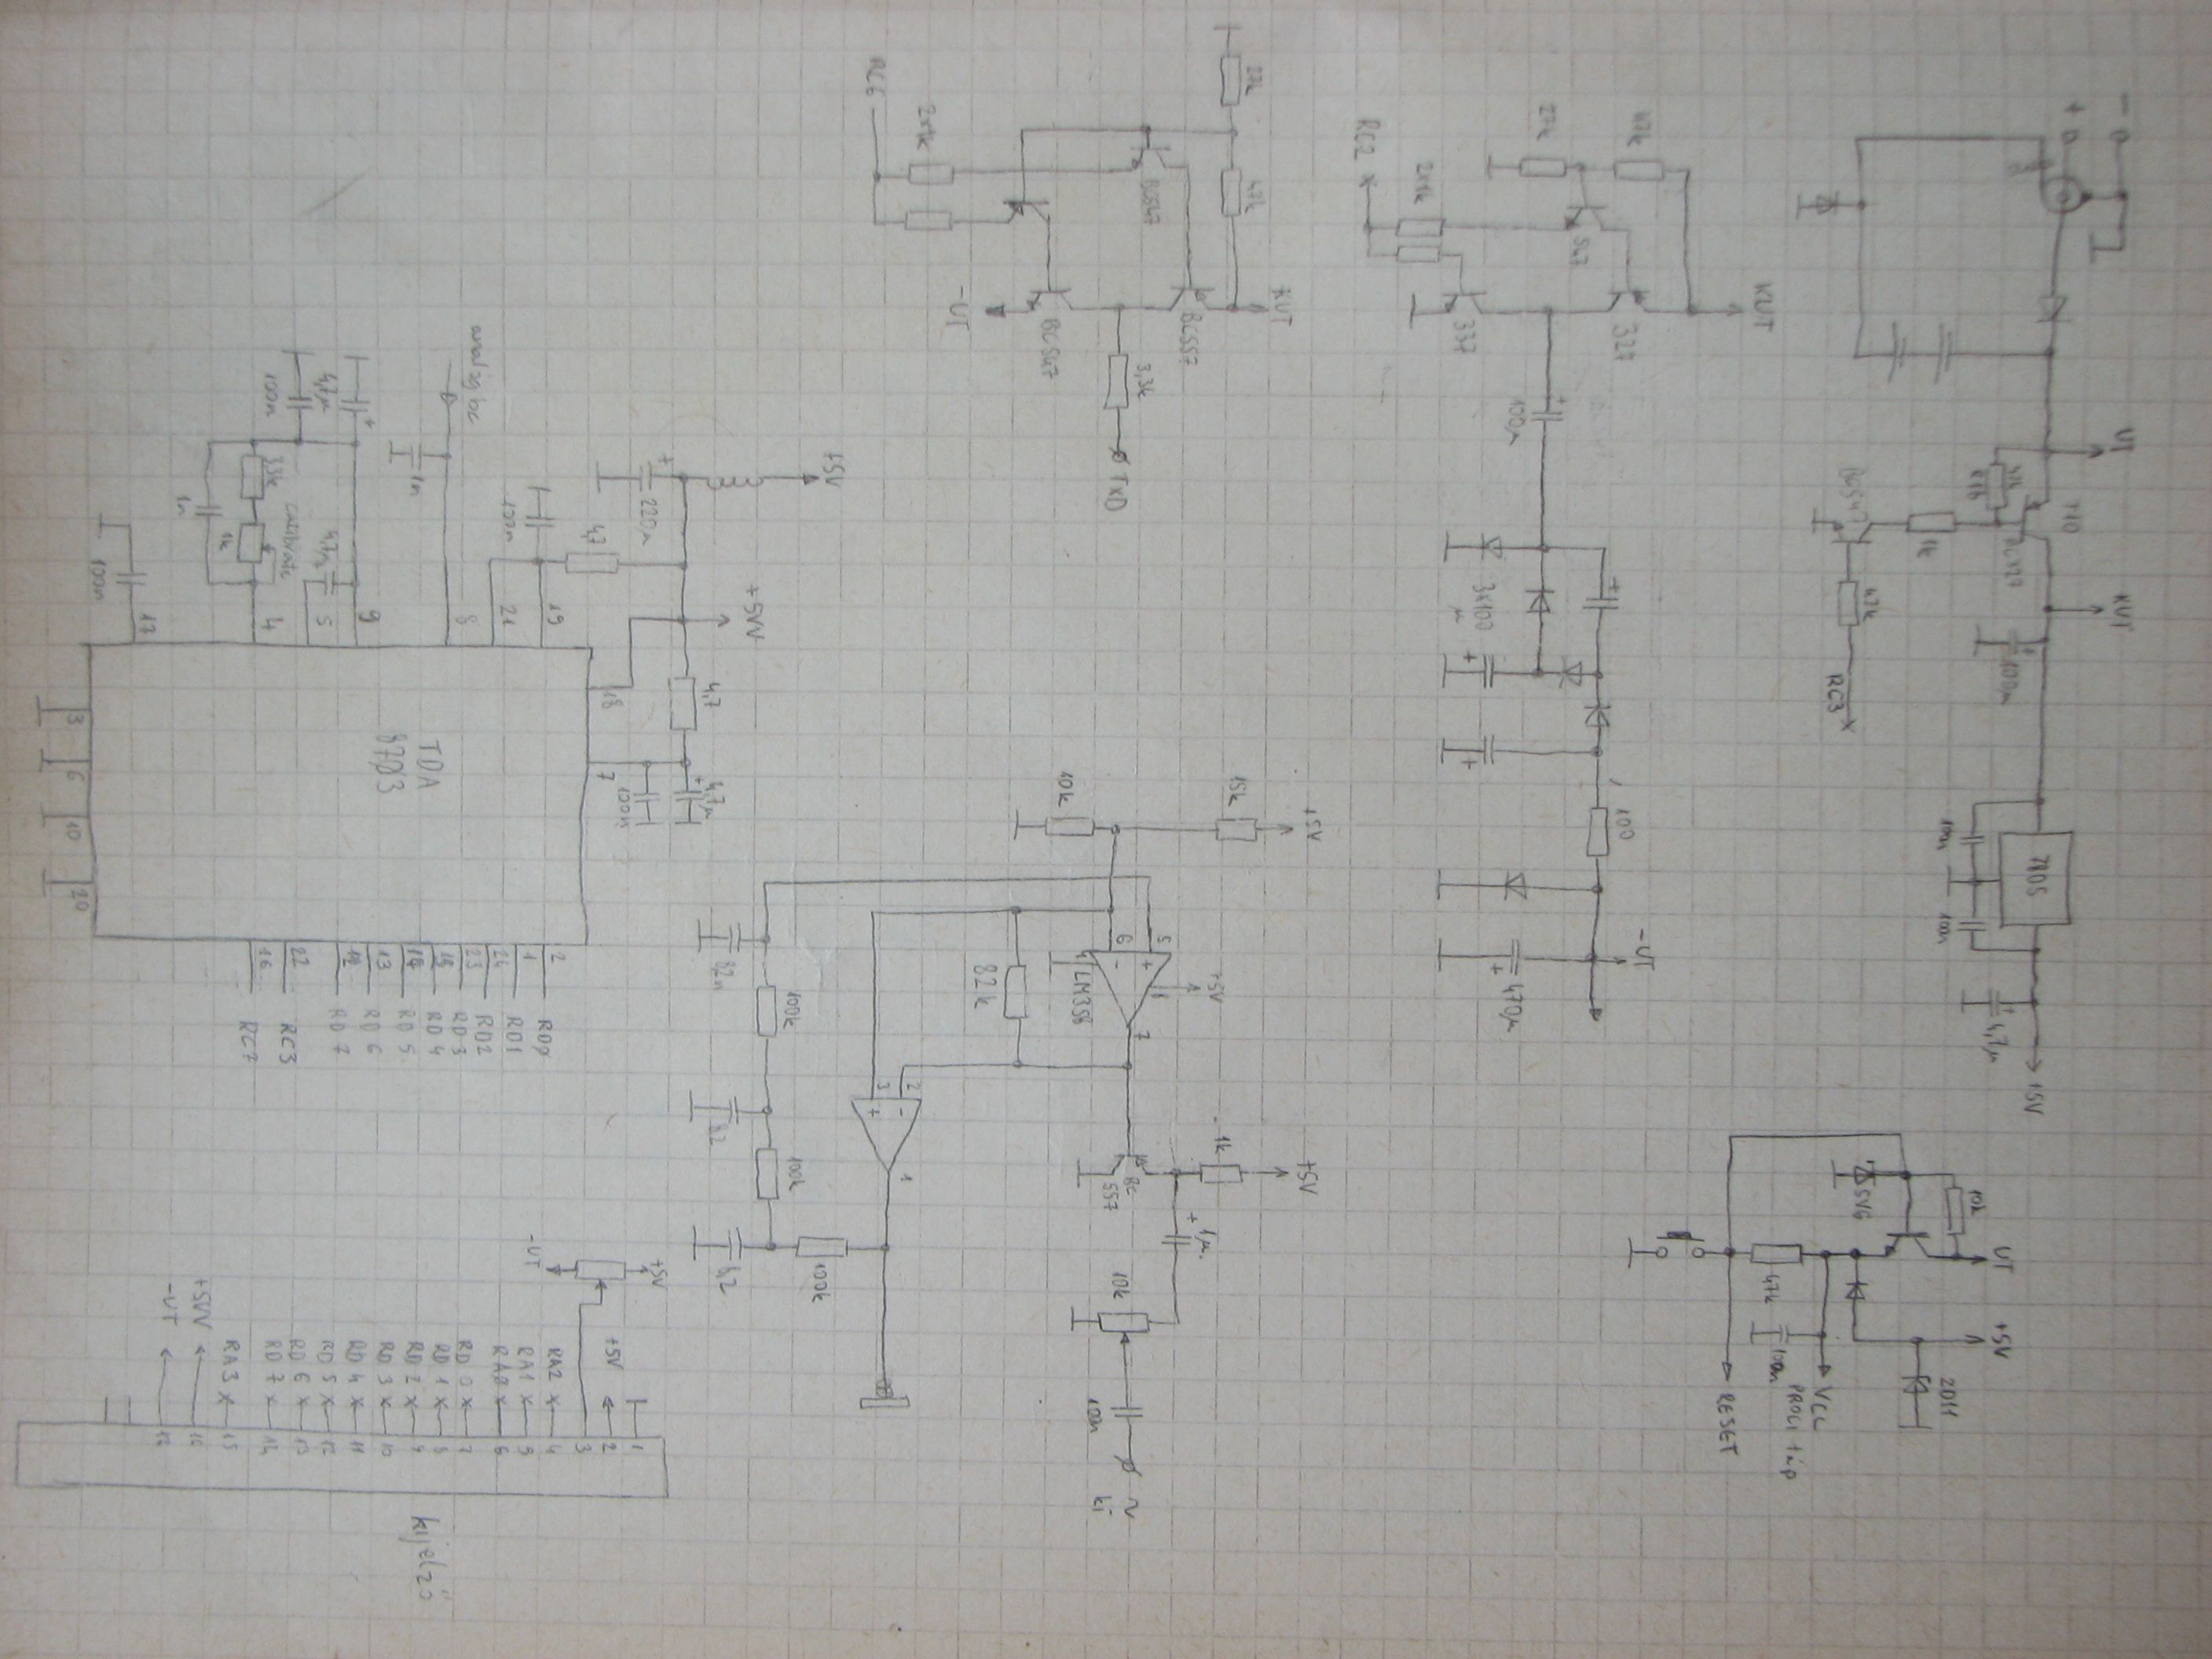 - +
UT
T10
47k
BC547
1k
47k
RC3
KUT
100µ
7805
100n
100n
4,7µ
+5V
10k
5V6
UT
+5V
47k
100n
2011
VCC
PROG táp
RESET
KUT
47k
27k
547
RC2
2x1k
327
337
100µ
3x100
µ
100
-UT
470µ
27k
47k
KUT
BC547
BC557
RC6
2x1k
BC547
-UT
3,3k
TxD
+5V
15k
10k
+5V
5
6
4
8
7
LM358
82k
2
3
1
+5V
1k
BC
557
1µ
10k
100n
~
ki
82n
100k
82
100k
82
100k
+5V
220µ
4,7
100n
+5VV
4,7
4,7µ
100n
analóg be
1n
4,7µ
100n
33k
calibrate
1k
1n
4,7µ
100n
17
4
5
9
8
21
19
18
7
TDA
8703
3
6
10
20
2 RD0
1 RD1
24 RD2
23 RD3
15 RD4
14 RD5
13 RD6
12 RD7
22 RC3
16 RC7
+5V
-UT
1
+5V 2
3
RA2 4
RA1 5
RA0 6
RD0 7
RD1 8
RD2 9
RD3 10
RD4 11
RD5 12
RD6 13
RD7 14
RA3 15
+5VV 16
-UT 17
kijelző